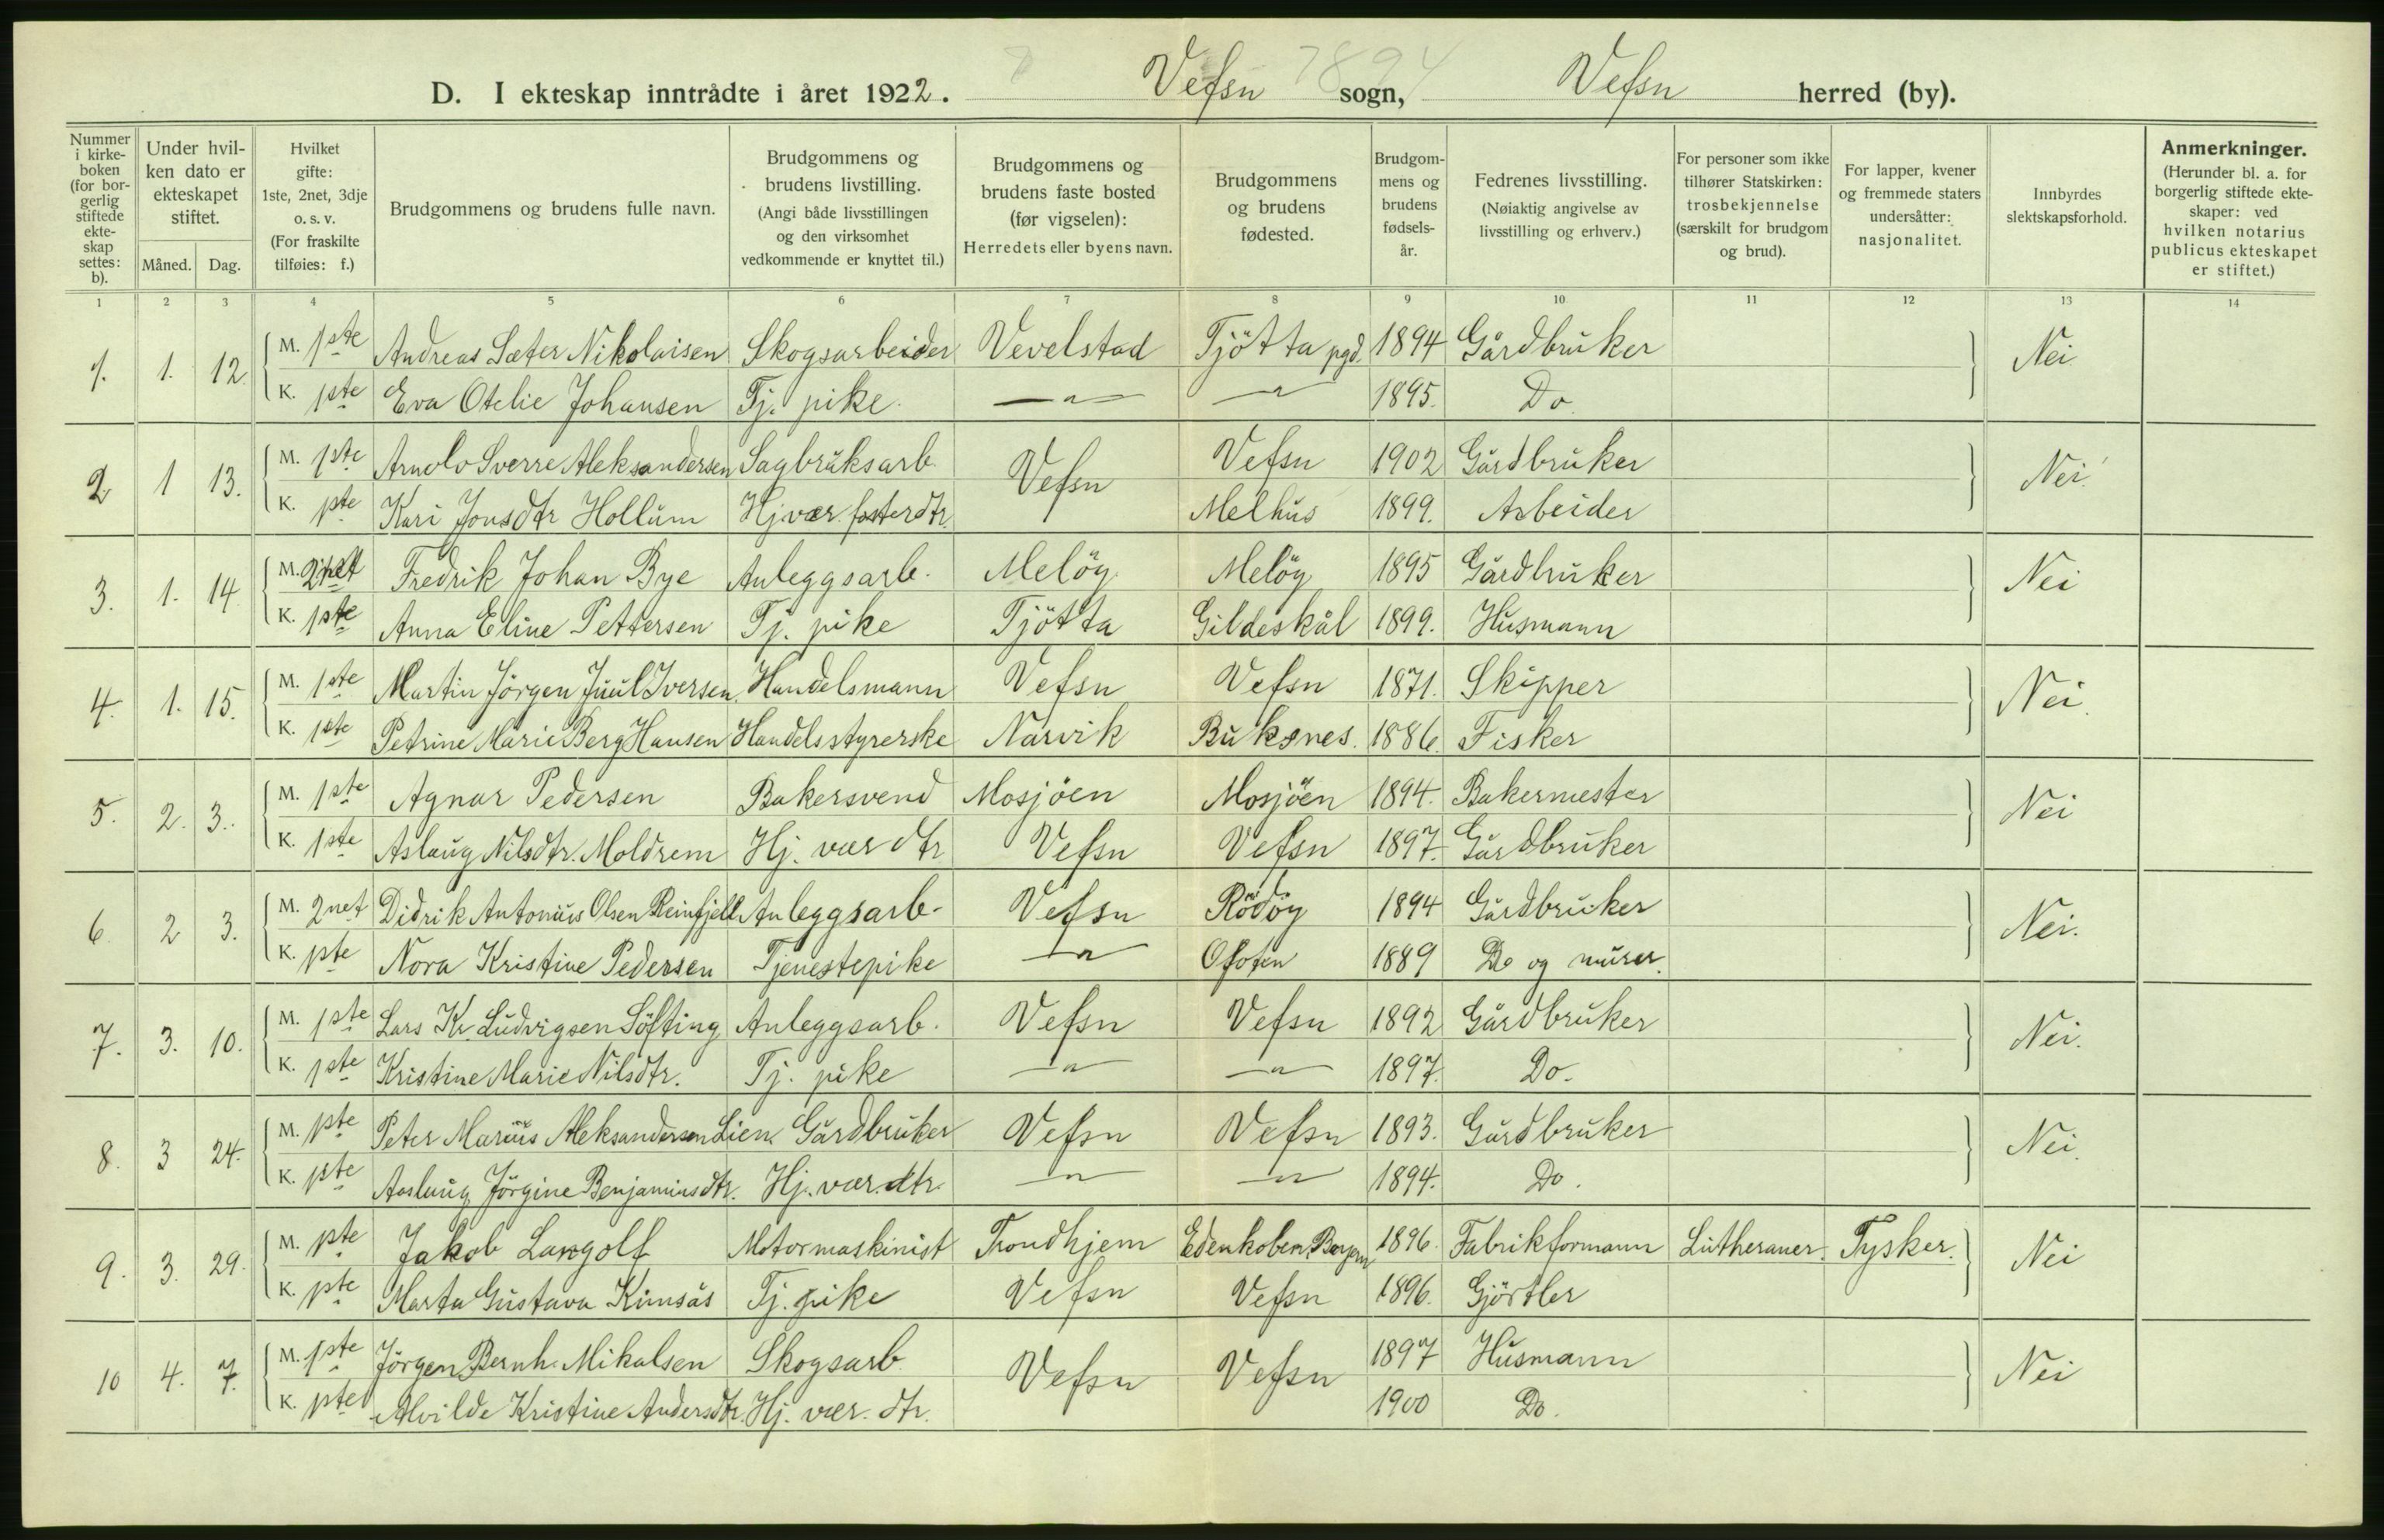 D. I ekteskap inntrådte i året 1922. Vefsn sogn, Vefsn herred (by).
7894
Nummer i kirkeboken (for borgerlig stiftede ekteskap settes: b).
Under hvilken dato er ekteskapet stiftet.
Måned. Dag.
Hvilket gifte: 1ste, 2net, 3dje o. s. v. (For fraskilte tilføies: f.)
Brudgommens og brudens fulle navn.
Brudgommens og brudens livstilling. (Angi både livsstillingen og den virksomhet vedkommende er knyttet til.)
Brudgommens og brudens faste bosted (før vigselen): Herredets eller byens navn.
Brudgommens og brudens fødested.
Brudgommens og brudens fødselsår.
Fedrenes livsstilling. (Nøiaktig angivelse av livsstilling og erhverv.)
For personer som ikke tilhører Statskirken: trosbekjennelse (særskilt for brudgom og brud).
For lapper, kvener og fremmede staters undersåtter: nasjonalitet.
Innbyrdes slektskapsforhold.
Anmerkninger. (Herunder bl. a. for borgerlig stiftede ekteskaper: ved hvilken notarius publicus ekteskapet er stiftet.)
1 2 3 4 5 6 7 8 9 10 11 12 13 14
1. 1. 12. M. 1ste Andreas Sæter Nikolaisen Skogsarbeider Vevelstad Tjötta pgd. 1894 Gårdbruker Nei
K. 1ste Eva Otelie Johansen Tj. pike — " — — " — 1895. Do
2 1 13. M. 1ste Arnolv Sverre Aleksandersen Sagbruksarb. Vefsn Vefsn 1902 Gårdbruker Nei
K. 1ste Kari Jonsdtr Hollum Hjvær. fosterdtr. Melhus 1899. Arbeider
3. 1. 14 M. 2net Fredrik Johan Bye Anleggsarb. Melöy Melöy 1895 Gårdbruker Nei
K. 1ste Anna Eline Pettersen Tj. pike Tjötta Gildeskål 1899. Husmann
4. 1. 15. M. 1ste Martin Jörgen Juul Iversen Handelsmann Vefsn Vefsn 1871. Skipper Nei.
K. 1ste Petrine Marie Berg Hansen Handelsstyrerske Narvik Buksnes. 1886. Fisker
5. 2. 3. M. 1ste Agnar Pedersen Bakersvend Mosjöen Mosjöen 1894. Bakermester Nei
K. 1ste Aslaug Nilsdtr. Moldrem Hj. vær dtr Vefsn Vefsn 1897. Gårdbruker
6 2 3. M. 2net Didrik Antonius Olsen Reinfjell Anleggsarb. Vefsn Rödöy 1894 Gårdbruker Nei.
K. 1ste Nora Kristine Pedersen Tjenestepike — " — Ofoten 1889 Do og murer.
7. 3. 10. M. 1ste Lars Kr. Ludvigsen Söfting Anleggsarb. Vefsn Vefsn 1892 Gårdbruker Nei.
K. 1ste Kristine Marie Nilsdtr. Tj. pike — " — — " — 1897. Do.
8. 3 24. M. 1ste Peter Marius Aleksandersen Lien Gårdbruker Vefsn Vefsn 1893. Gårdbruker Nei.
K. 1ste Aaslaug Jörgine Benjaminsdtr. Hj. vær. dtr. — " — — " — 1894. Do.
9. 3. 29. M. 1ste Jakob Langolf Motormaskinist Trondhjem Edenkoben, Bayern 1896. Fabrikformann Lutheraner. Tysker. Nei
K. 1ste Marta Gustava Kimsås Tj. pike Vefsn Vefsn 1896. Gjörtler
10 4. 7. M. 1ste Jörgen Bernh. Mikalsen Skogsarb. Vefsn Vefsn 1897 Husmann Nei
K. 1ste Alvilde Kristine Andersdtr. Hj. vær. dtr. 1900 Do.